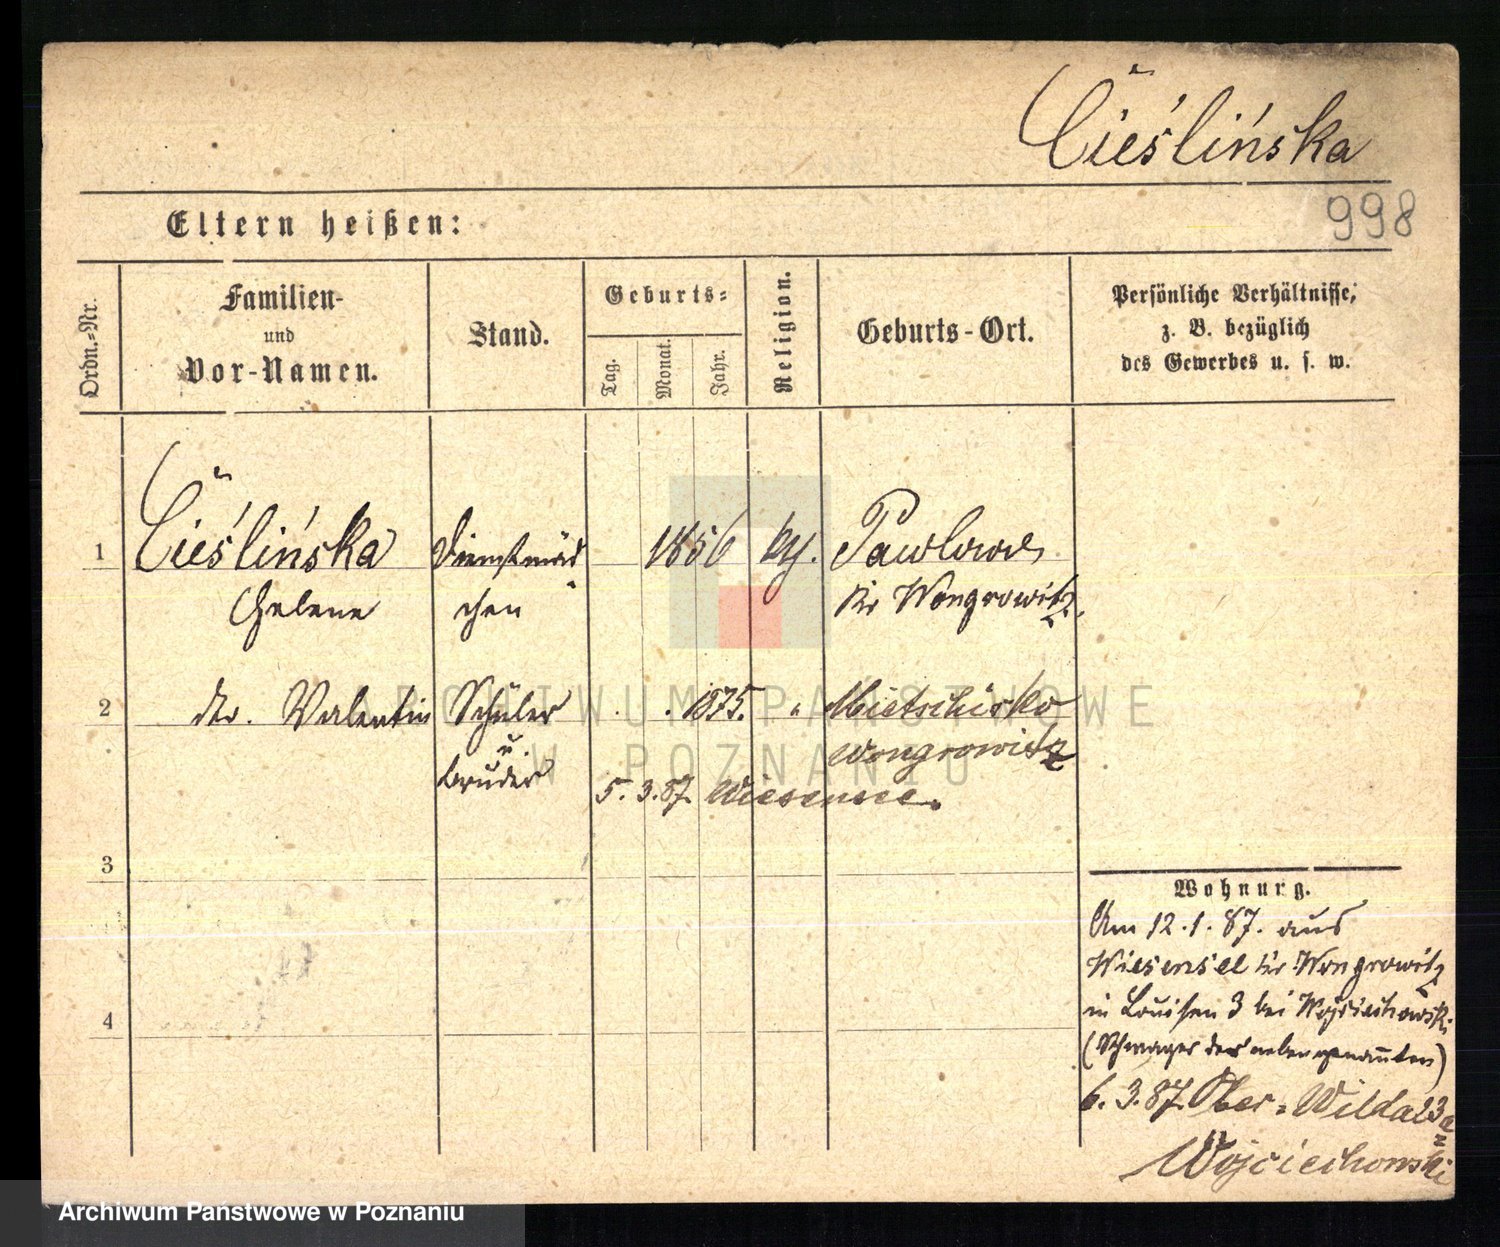 Cieślińska
998
Eltern heißen:
Ordn.-Nr.
Familien-
und
Vor-Namen.
Stand.
Geburts-
Tag.
Monat.
Jahr.
Religion.
Geburts-Ort.
Persönliche Verhältnisse,
z. B. bezüglich
des Gewerbes u. s. w.
1
Cieślińska
Helene
Dienstmäd
chen
1856
Pawlowo
Kr Wongrowitz
2
do. Valentin
Schüler
u.
Bruder
1875.
"
Mietschisko
Wongrowitz
5. 3. 87. Wiesensee.
3
4
Wohnung.
Am 12. 1. 87. aus
Wiesensee Kr Wongrowitz
in Louisen 3 bei Wojciechowski
(Schwager der nebengenannten)
6. 3. 87. Ober-Wilda 23a
Wojciechowski
ARCHIWUM PAŃSTWOWE
W POZNANIU
Archiwum Państwowe w Poznaniu